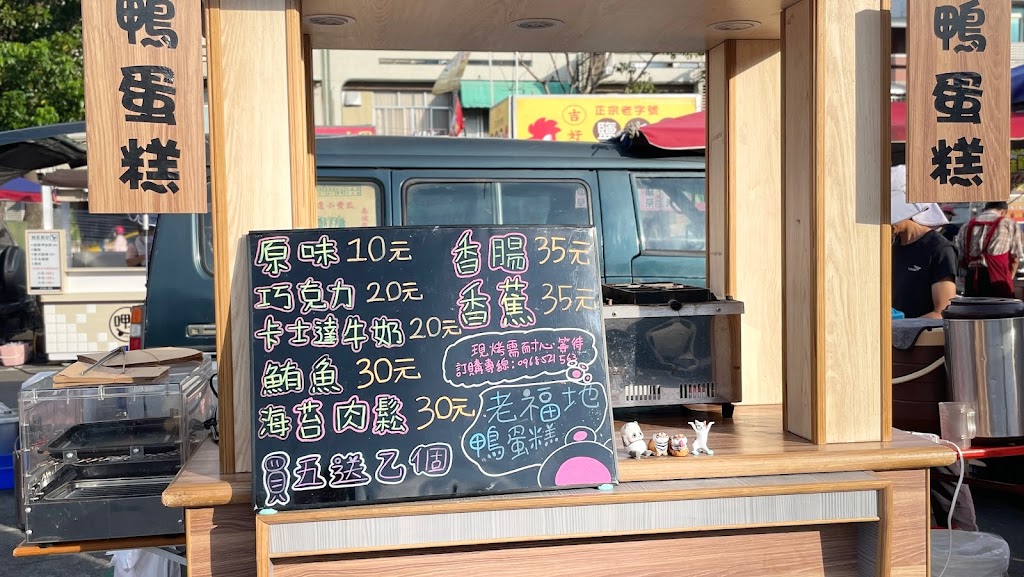 鴨蛋糕
鴨蛋糕
正宗老字號
吉好
鹽
原味 10元
巧克力 20元
卡士達牛奶 20元
鮪魚 30元
海苔肉鬆 30元
買五送乙個
香腸 35元
香蕉 35元
現烤需耐心等待
老福地
鴨蛋糕
呷